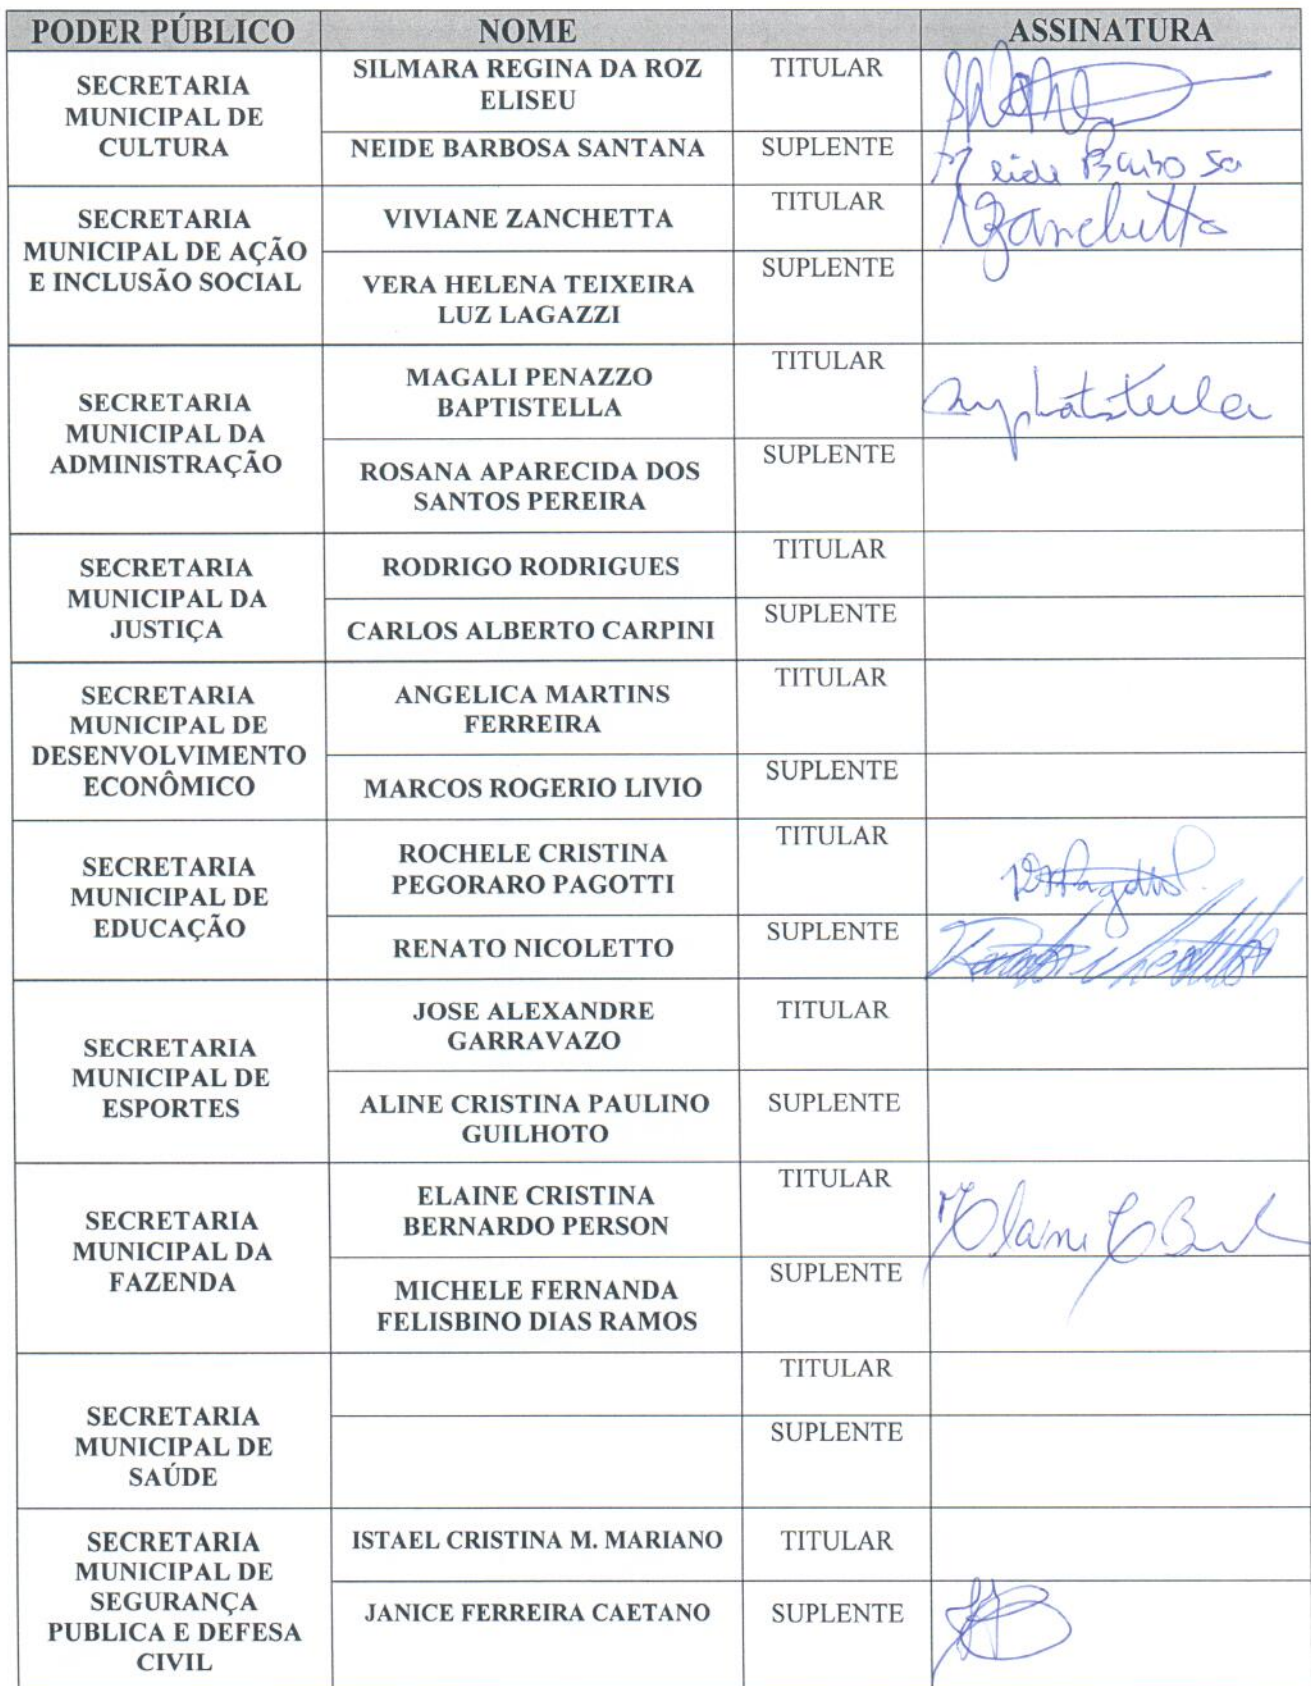 PODER PÚBLICO NOME ASSINATURA
SECRETARIA
MUNICIPAL DE
CULTURA
SILMARA REGINA DA ROZ
ELISEU
TITULAR
NEIDE BARBOSA SANTANA
SUPLENTE
Neide Barbosa
SECRETARIA
MUNICIPAL DE AÇÃO
E INCLUSÃO SOCIAL
VIVIANE ZANCHETTA
TITULAR
VZanchetta
VERA HELENA TEIXEIRA
LUZ LAGAZZI
SUPLENTE
SECRETARIA
MUNICIPAL DA
ADMINISTRAÇÃO
MAGALI PENAZZO
BAPTISTELLA
TITULAR
ROSANA APARECIDA DOS
SANTOS PEREIRA
SUPLENTE
SECRETARIA
MUNICIPAL DA
JUSTIÇA
RODRIGO RODRIGUES
TITULAR
CARLOS ALBERTO CARPINI
SUPLENTE
SECRETARIA
MUNICIPAL DE
DESENVOLVIMENTO
ECONÔMICO
ANGELICA MARTINS
FERREIRA
TITULAR
MARCOS ROGERIO LIVIO
SUPLENTE
SECRETARIA
MUNICIPAL DE
EDUCAÇÃO
ROCHELE CRISTINA
PEGORARO PAGOTTI
TITULAR
RENATO NICOLETTO
SUPLENTE
Renato Nicoletto
SECRETARIA
MUNICIPAL DE
ESPORTES
JOSE ALEXANDRE
GARRAVAZO
TITULAR
ALINE CRISTINA PAULINO
GUILHOTO
SUPLENTE
SECRETARIA
MUNICIPAL DA
FAZENDA
ELAINE CRISTINA
BERNARDO PERSON
TITULAR
Elaine C B
MICHELE FERNANDA
FELISBINO DIAS RAMOS
SUPLENTE
SECRETARIA
MUNICIPAL DE
SAÚDE
TITULAR
SUPLENTE
SECRETARIA
MUNICIPAL DE
SEGURANÇA
PUBLICA E DEFESA
CIVIL
ISTAEL CRISTINA M. MARIANO
TITULAR
JANICE FERREIRA CAETANO
SUPLENTE